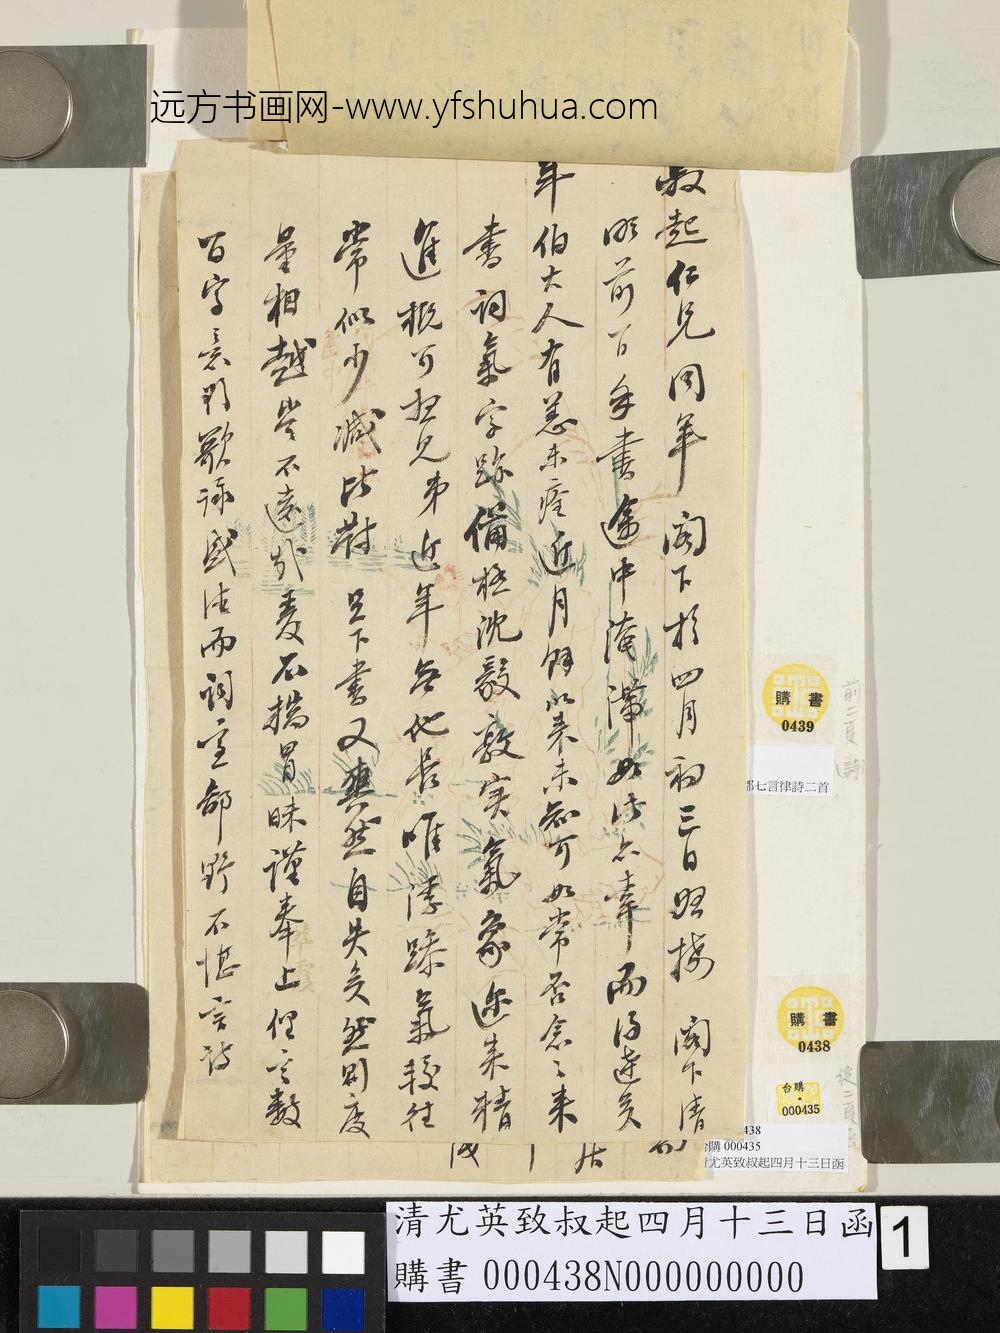 远方书画网-www.yfshuhua.com
叔起仁兄同年 閣下於四月初三日照接 閣下清
明前一日手書途中淹滯如此亦幸而得達矣
年
伯大人有恙未痊近月餘以來未知可如常否念念來
書詞氣字跡備極沈毅敦実氣象邇來精
進概可想見弟近年無他長唯浮躁氣較往
常似少減比對 足下書又爽然自失矣然則度
量相越豈不遠哉爰不揣冒昧謹奉上俚言數
百字意別歌詠盛德而詞意鄙野不堪言詩
購書
0439
前二頁(詩)
郎七言律詩二首
購書
0438
台購
000435
後二頁
438
台購 000435
清尤英致叔起四月十三日函
清尤英致叔起四月十三日函
購書 000438N000000000
1